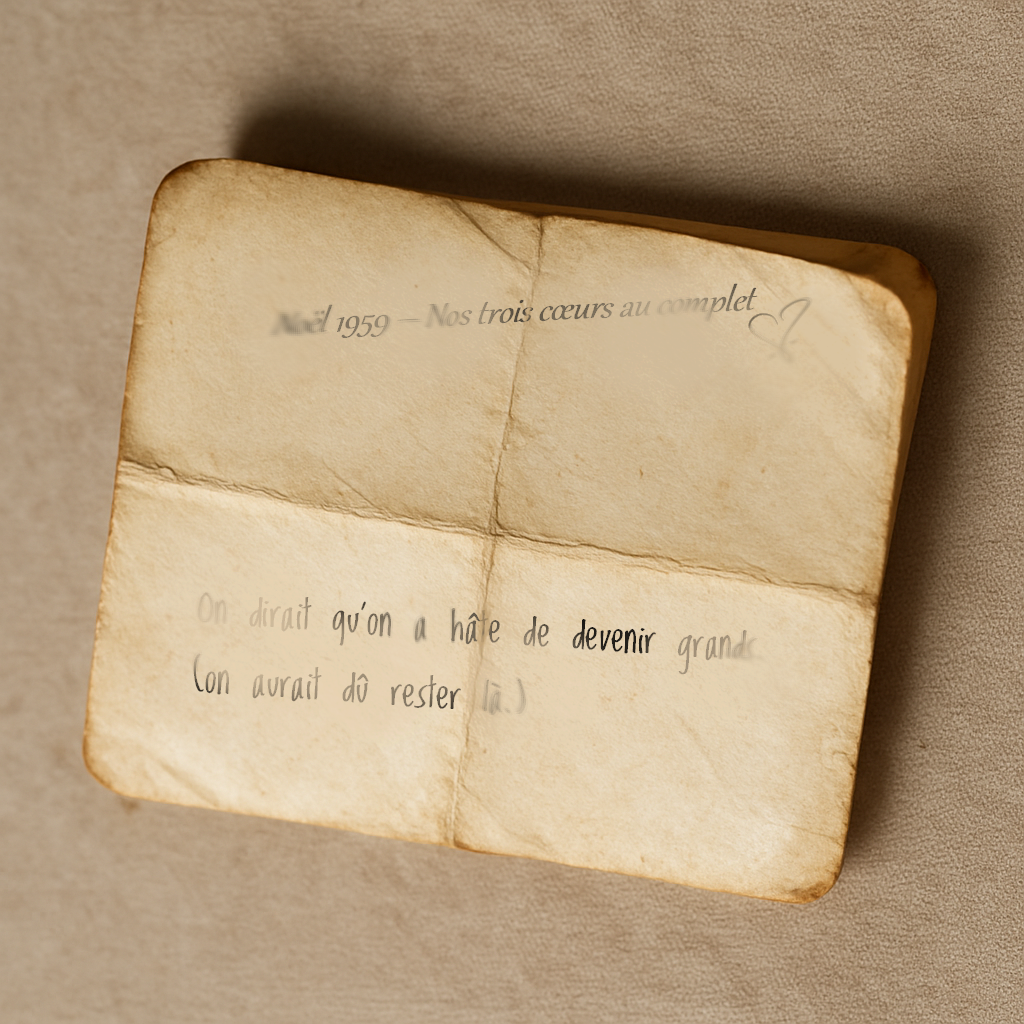 Noël 1959 — Nos trois cœurs au complet
On dirait qu'on a hâte de devenir grands
(on aurait dû rester là.)